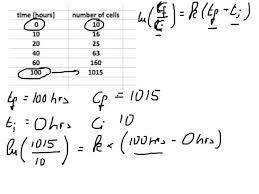 time [hours] number of cells
0 10
10 16
20 25
40 63
60 160
100 1015
ln(Cf/Ci) = k(tf - ti)
tf = 100 hrs Cf = 1015
ti = 0 hrs Ci 10
ln(1015/10) = k × (100 hrs - 0 hrs)